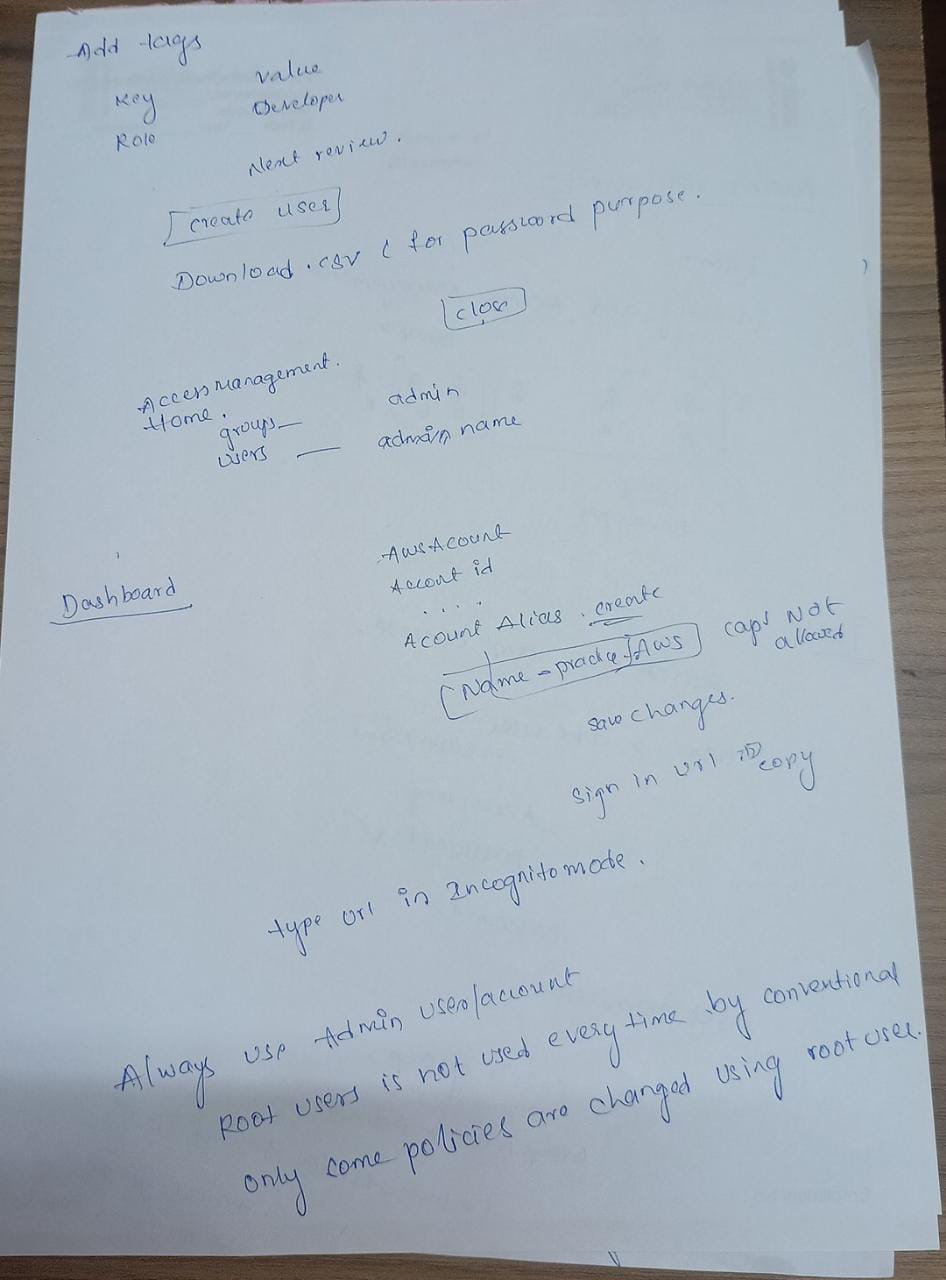 Add tags
Key Value
Role Developer
Next review.
Create user
Download .csv ( for password purpose.
close
Access Management.
Home.
groups — admin
users — admin name
Dashboard
Aws Acount
Accout id
. . . .
Acount Alias . create
Name - practice AWS caps Not allowed
save changes.
sign in url copy
type url in Incognito mode.
Always use Admin user/account
Root users is not used every time by conventional
only some policies are changed using root user.